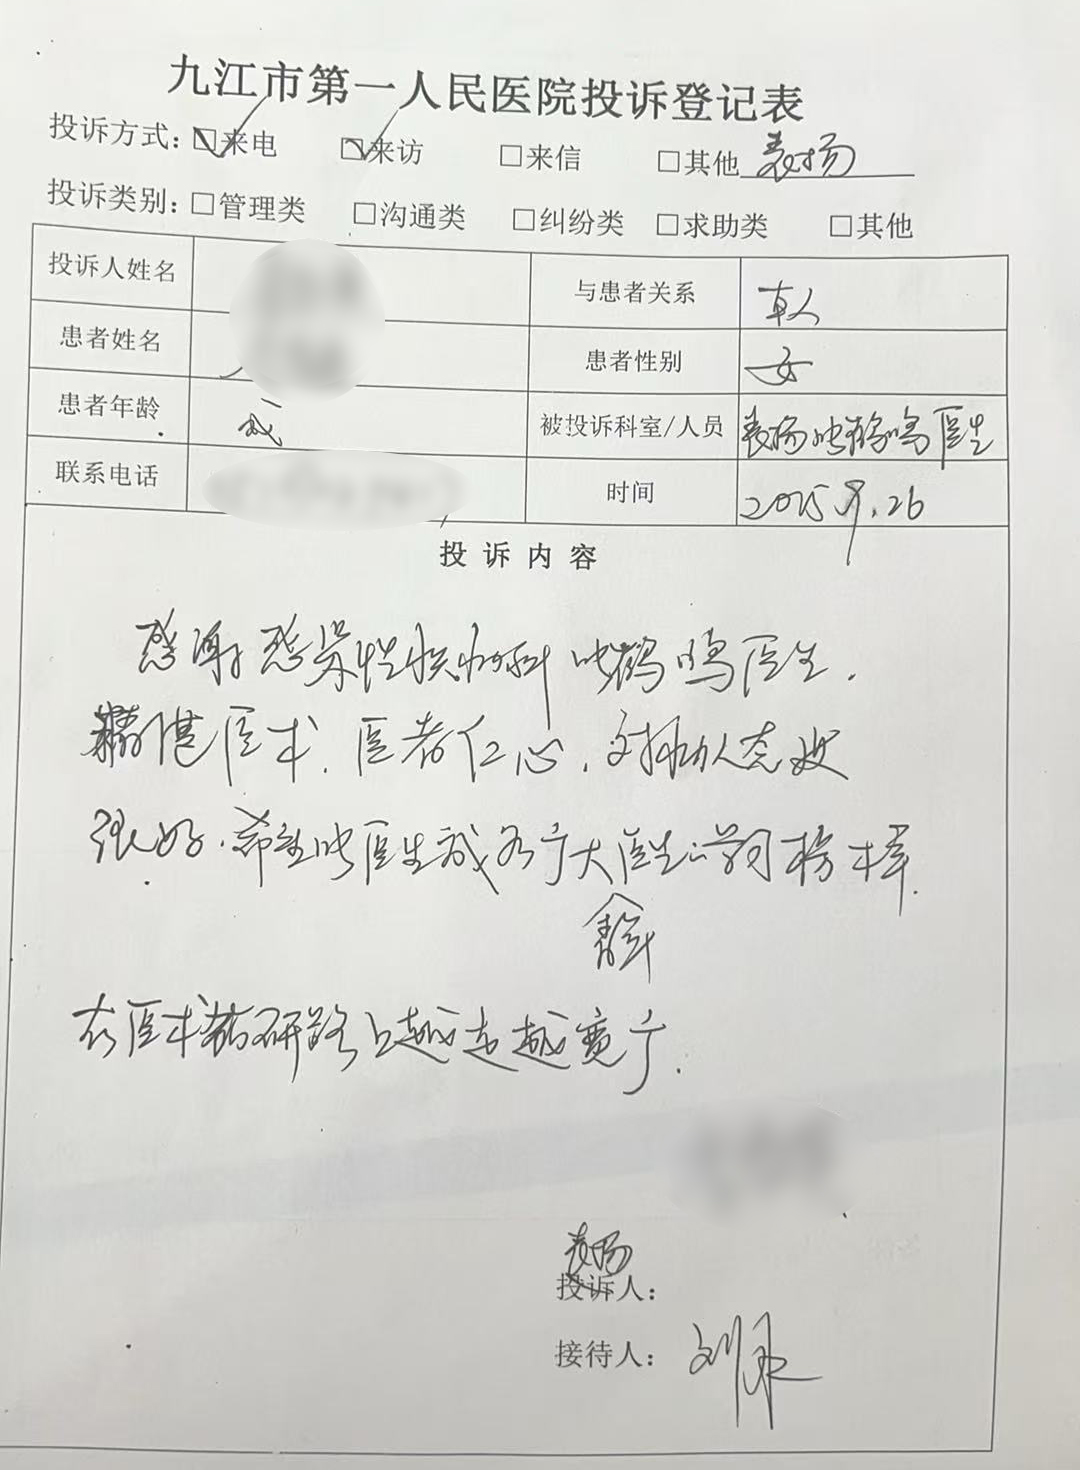 九江市第一人民医院投诉登记表
投诉方式：☑来电 ☑来访 □来信 □其他 表扬
投诉类别：□管理类 □沟通类 □纠纷类 □求助类 □其他
投诉人姓名 与患者关系 本人
患者姓名 患者性别 女
患者年龄 成 被投诉科室/人员 表扬 鹤鸣医生
联系电话 时间 2025 9.26
投诉内容
感谢感染性疾病科 鹤鸣医生.
精湛医术.医者仁心.对病人态度
很好.希望 医生成为广大医生的学习榜样.
在医术钻研路上越走越宽广.
表扬
投诉人：
接待人：刘